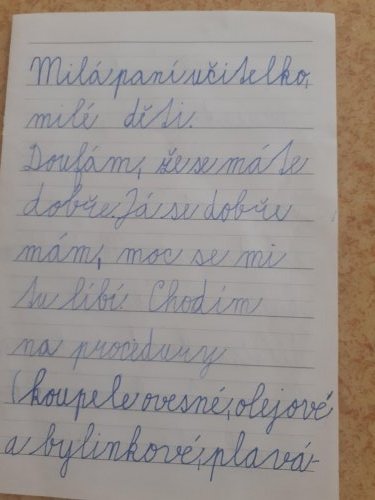 Milá paní učitelko,
milé děti.
Doufám, že se máte
dobře. Já se dobře
mám, moc se mi
tu líbí. Chodím
na procedury
(koupele ovesné, olejové
a bylinkové, plavá-